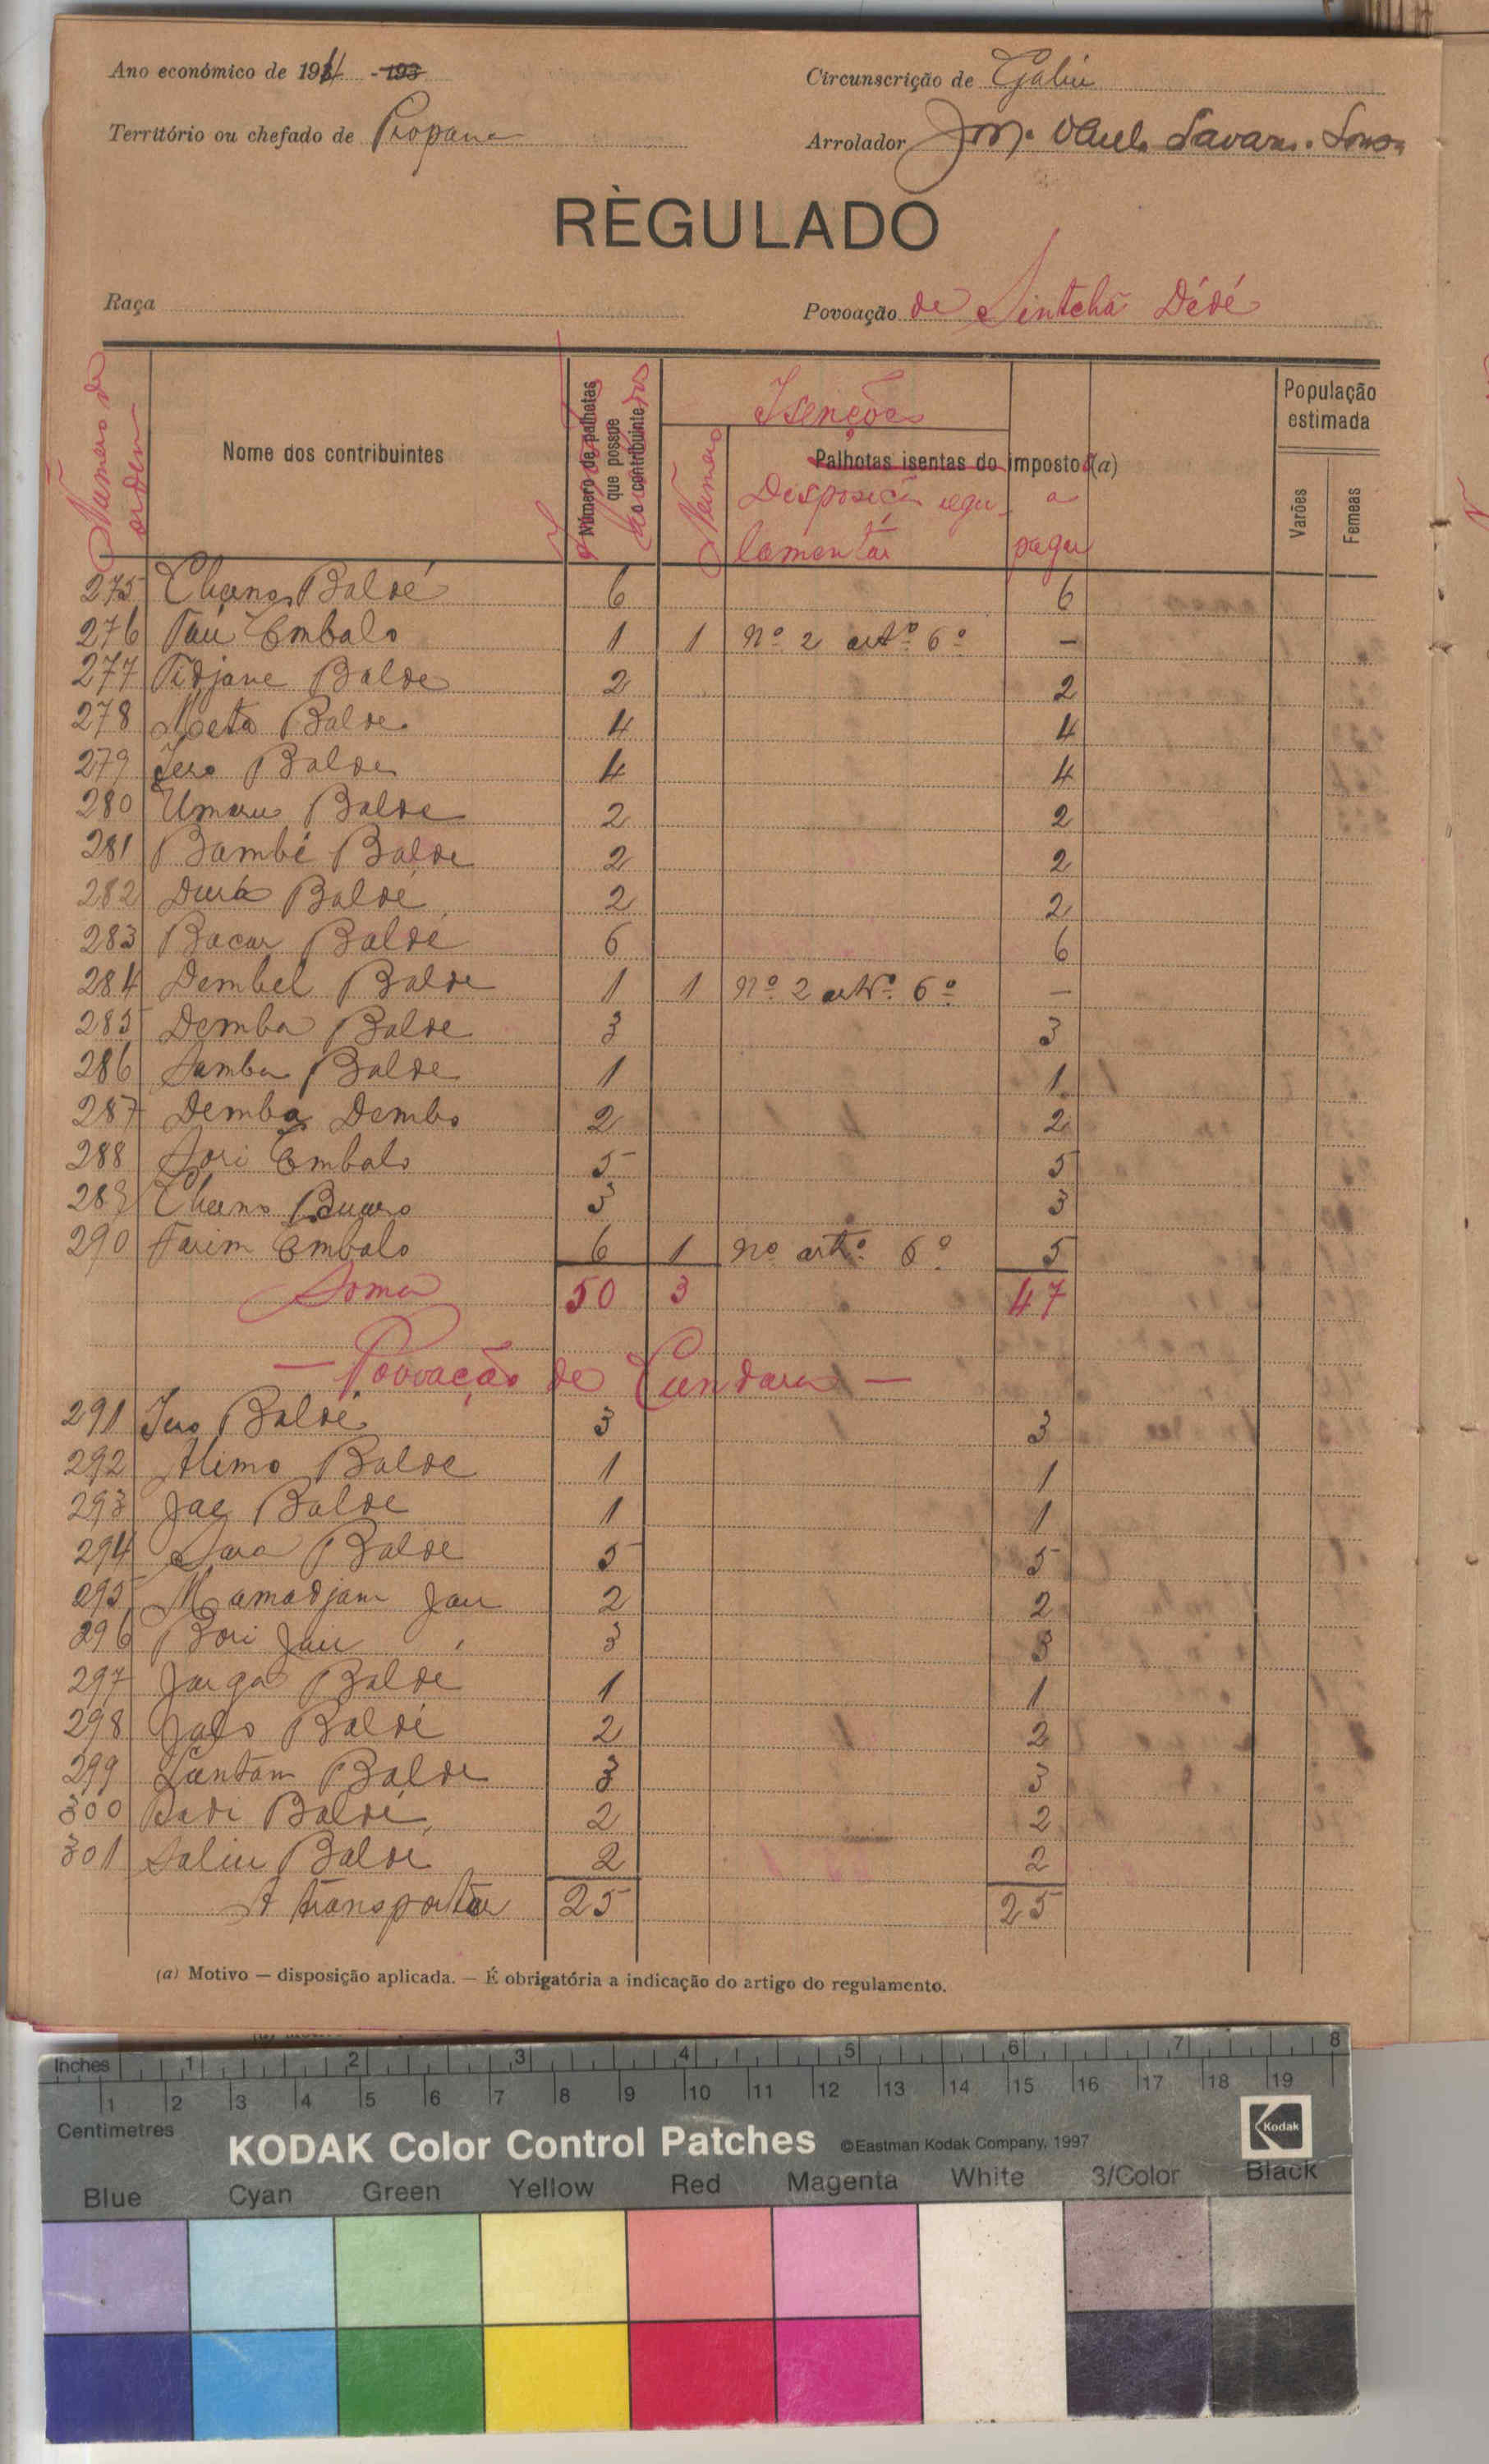 Ano económico de 19 - 193
Circunscrição de Gabú
Território ou chefado de Propana
Arrolador
RÈGULADO
Raça
Povoação de Sintchã Dédé
Numero de ordem
Nome dos contribuintes
Número de palhotas que possue o contribuinte
Isenções
Numero
Palhotas isentas do imposto (a)
Disposição regulamentar
a pagar
População estimada
Varões
Femeas
275 Baldé 6 6
276 Embalo 1 1 nº 2 artº 6º —
277 Tidjane Balde 2 2
278 Balde 4 4
279 Balde 4 4
280 Umaru Balde 2 2
281 Bambé Balde 2 2
282 Durá Baldé 2 2
283 Bacar Baldé 6 6
284 Dembel Balde 1 1 nº 2 artº 6º —
285 Demba Balde 3 3
286 Samba Balde 1 1
287 Demba Dembo 2 2
288 Sori Embalo 5 5
289 3 3
290 Farim Embalo 6 1 nº artº 6º 5
Soma 50 3 47
— Povoação de Cundara —
291 Baldé 3 3
292 Balde 1 1
293 Balde 1 1
294 Balde 5 5
295 Mamadjam Jau 2 2
296 Bori Jau 3 3
297 Jarga Baldé 1 1
298 Baldé 2 2
299 Balde 3 3
300 Baldé 2 2
301 Saliu Balde 2 2
A transportar 25 25
(a) Motivo — disposição aplicada. — É obrigatória a indicação do artigo do regulamento.
Inches 1 2 3 4 5 6 7 8
1 2 3 4 5 6 7 8 9 10 11 12 13 14 15 16 17 18 19
Centimetres
KODAK Color Control Patches ©Eastman Kodak Company, 1997 Kodak
Blue Cyan Green Yellow Red Magenta White 3/Color Black